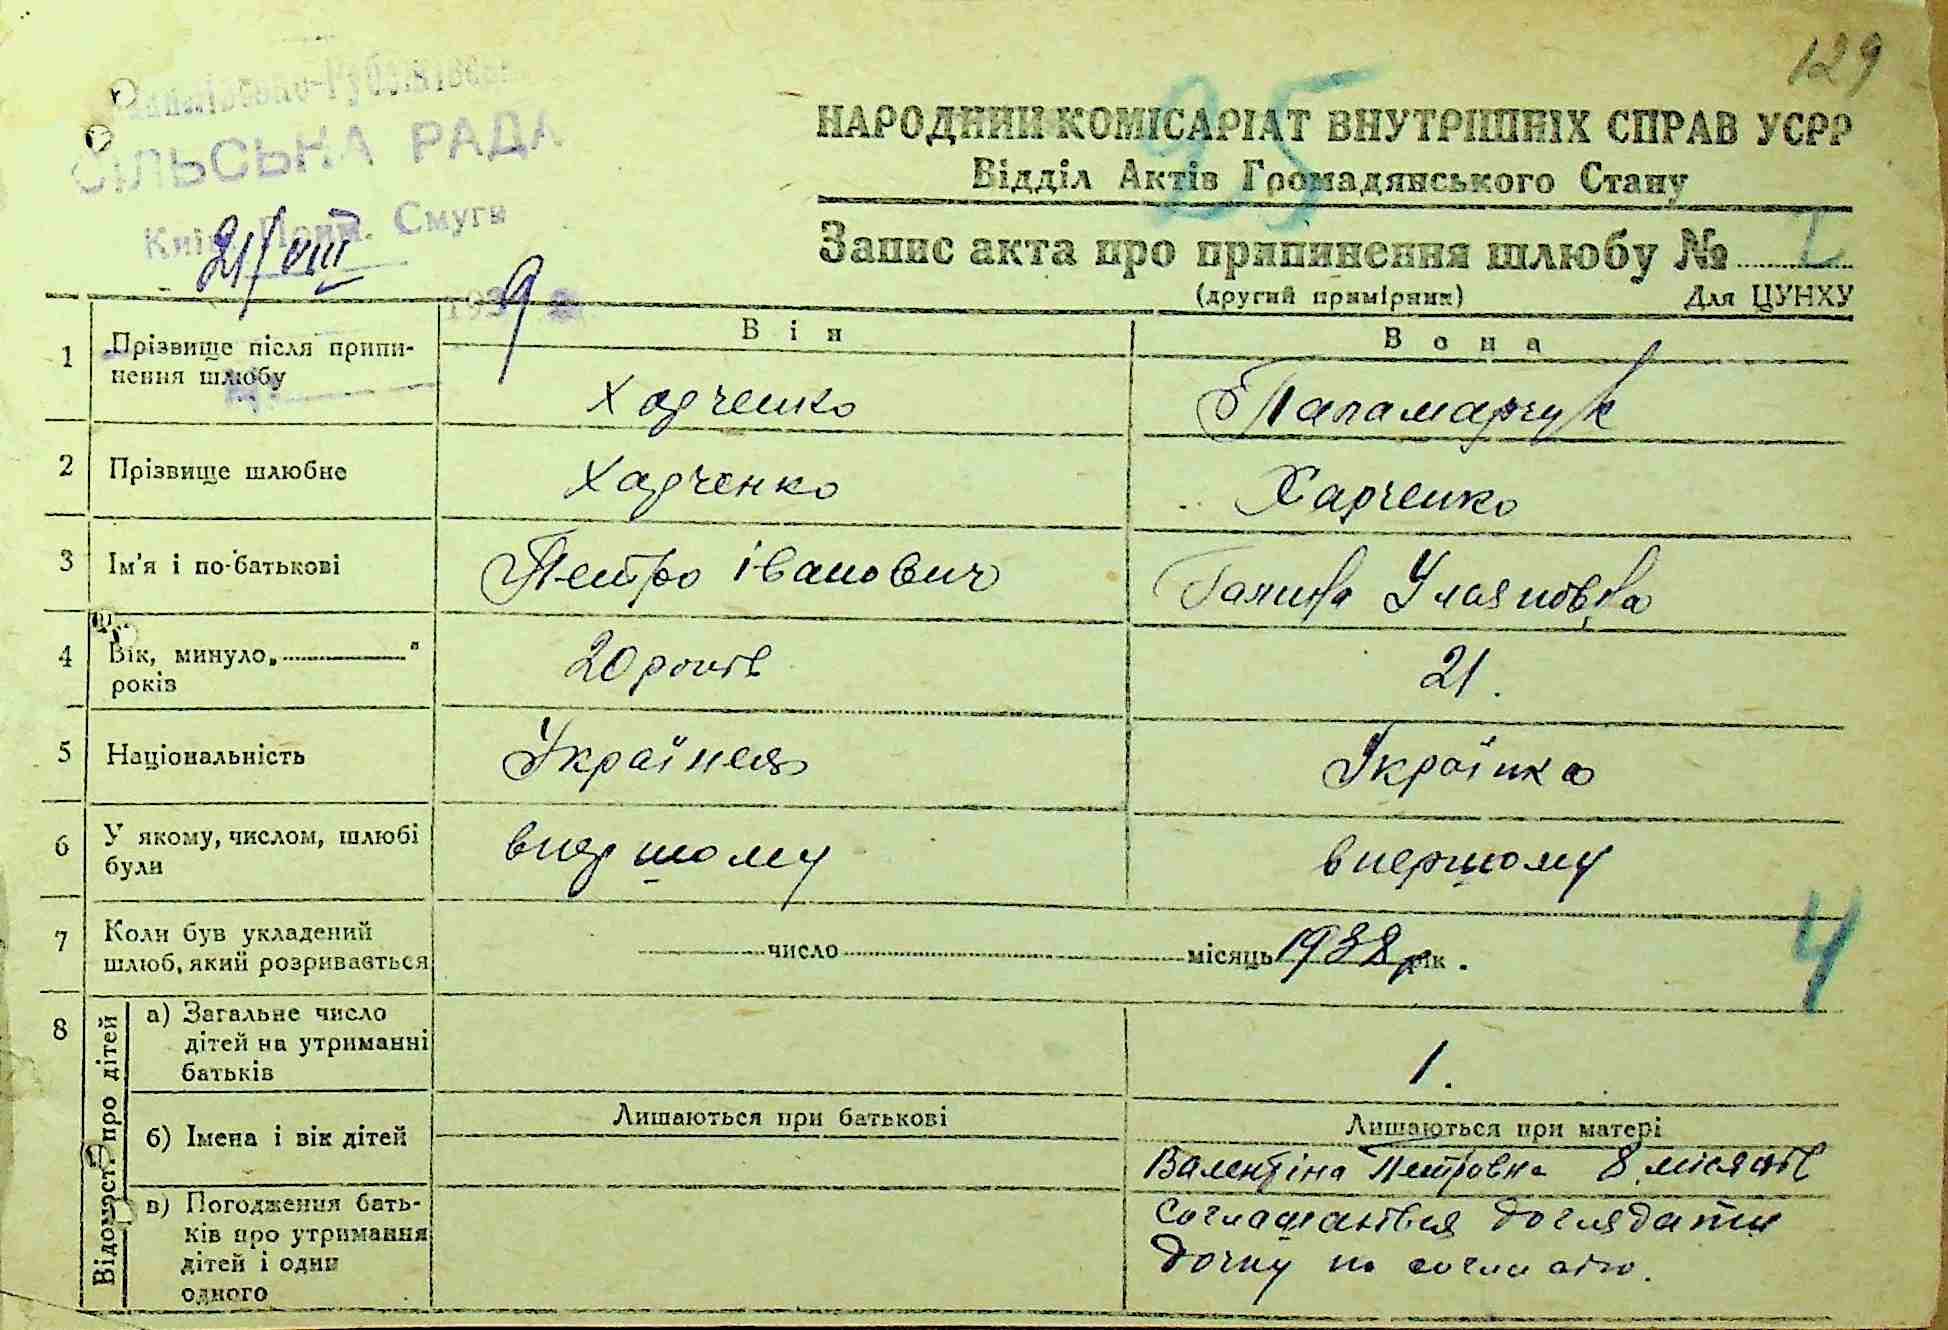 129
95
СІЛЬСЬКА РАДА
Смуги
21/VIII
1939
НАРОДНИЙ КОМІСАРІАТ ВНУТРІШНІХ СПРАВ УСРР
Відділ Актів Громадянського Стану
Запис акта про припинення шлюбу № 2
(другий примірник) Для ЦУНХУ
Він Вона
1 Прізвище після припи-
нення шлюбу
Харченко Паламарчук
2 Прізвище шлюбне Харченко Харченко
3 Ім'я і по-батькові Петро Іванович Галина Уляновна
4 Вік, минуло „ “
років
20 років 21.
5 Національність Українець Українка
6 У якому, числом, шлюбі
були
впершому впершому
7 Коли був укладений
шлюб, який розривається
число місяць 1938 рік.
4
8 Відомості про дітей
а) Загальне число
дітей на утриманні
батьків
1.
б) Імена і вік дітей
Лишаються при батькові Лишаються при матері
Валентіна Петровна 8 місяців
в) Погодження бать-
ків про утримання
дітей і один
одного
доглядати
дочку